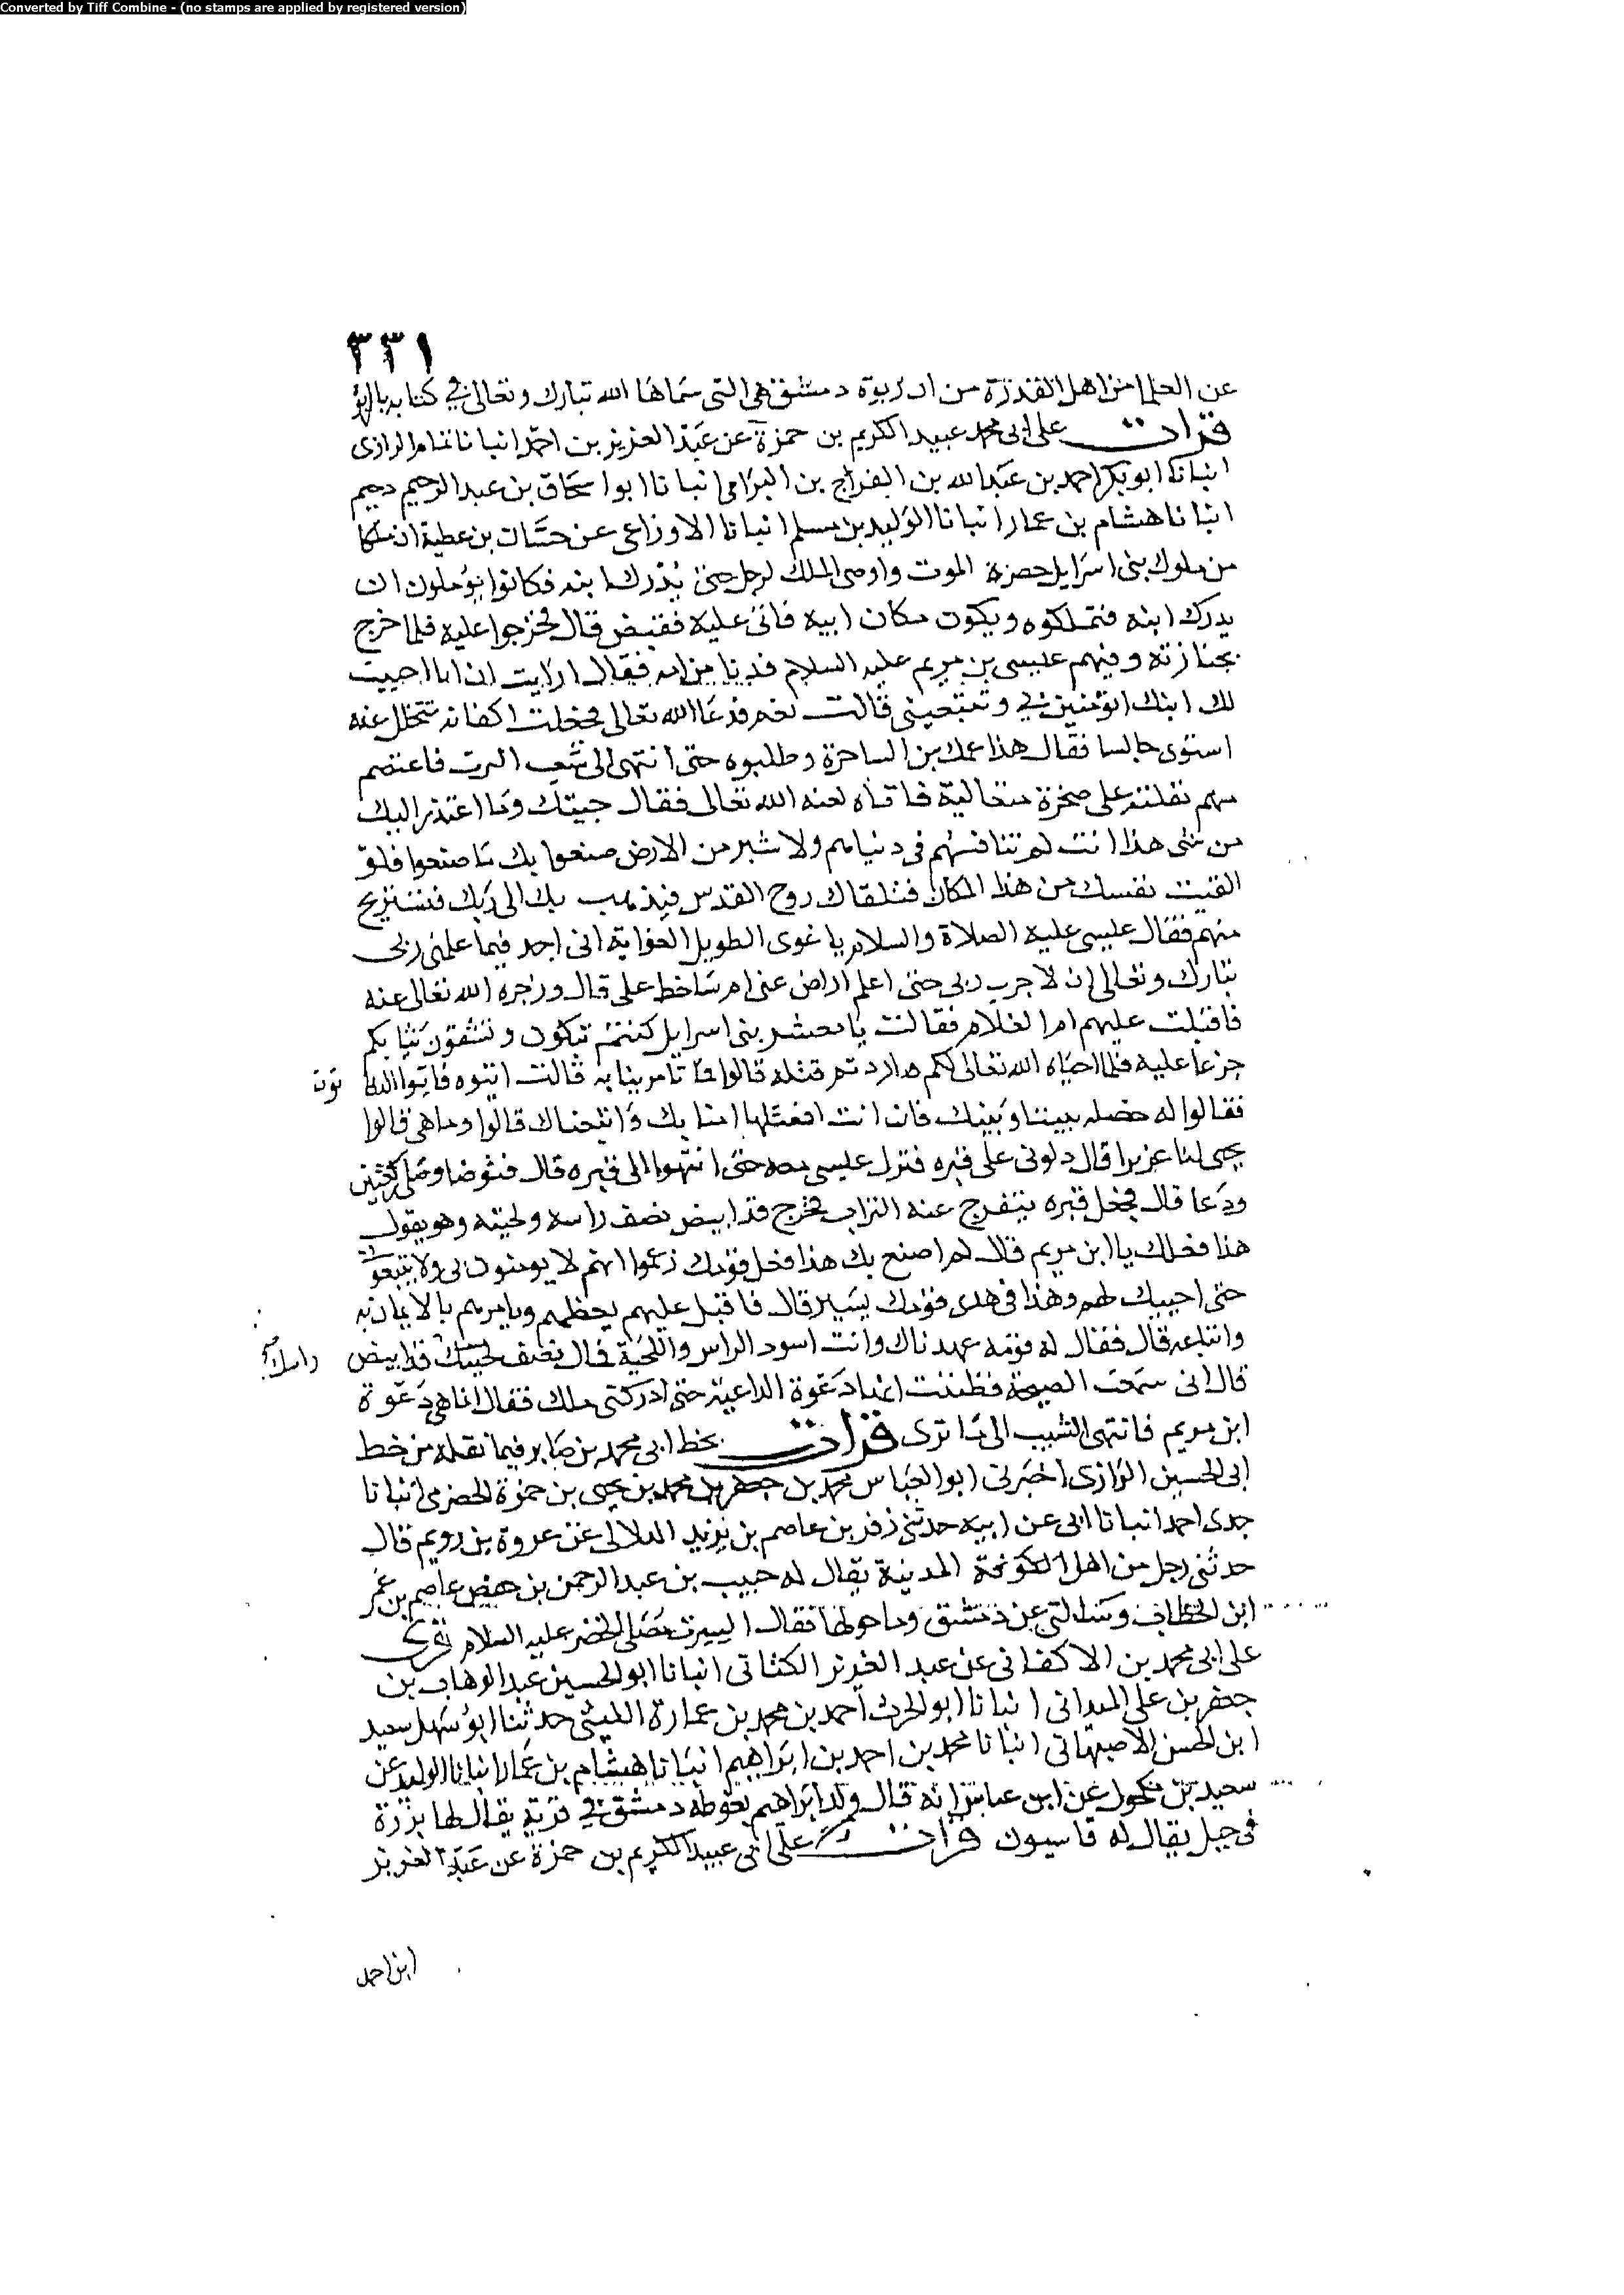 Converted by Tiff Combine - (no stamps are applied by registered version)
٣٣١
عن العلما من اهل القدرة من ان ربوة دمشق هي التي سماها الله تبارك وتعالى في كتابه بالربو
قرات على ابي محمد عبد الكريم بن حمزة عن عبد العزيز بن احمد انبانا تمام الرازي
انبانا ابو بكر احمد بن عبد الله بن الفراج بن البرامي انبانا ابو اسحاق بن عبد الرحيم دحيم
انبانا هشام بن عمار انبانا الوليد بن مسلم انبانا الاوزاعي عن حسان بن عطية ان ملكا
من ملوك بني اسرايل حضرة الموت واوصى بالملك لرجل حتى يدرك ابنه فكانوا يؤملون ان
يدرك ابنه فتملكوه ويكون مكان ابيه فاتى عليه فقبض قال فخرجوا عليه فلما خرج
بجنازته وفيهم عيسى بن مريم عليه السلام فدنا من امه فقال ارايت ان انا احييت
لك ابنك اتؤمنين بي وتتبعيني قالت نعم فدعا الله تعالى فجعلت اكفانه تتخلل عنه
استوى جالسا فقال هذا عمك بن الساحرة وطلبوه حتى انتهى الى شعب فاعتصم
منهم بقلته على صخرة متعالية فاتاه لعنه الله تعالى فقال جيتك وما اعتذر اليك
من شي هذا انت لم تنافسهم في دنياهم ولا شبر من الارض صنعوا بك ما صنعوا فلو
القيت نفسك من هذا المكان فتلقاك روح القدس فيذهب بك الى ربك فتستريح
منهم فقال عيسى عليه الصلاة والسلام يا غوى الطويل الغواية اني اجد فيما علمني ربي
تبارك وتعالى ان لا اجرب ربي حتى اعلم اراض عني ام ساخط على قال وزجره الله تعالى عنه
فاقبلت عليهم ام الغلام فقالت يا معشر بني اسرايل كنتم تبكون وتشقون ثيابكم
جزعا عليه فلما احياه الله تعالى لكم اردتم قتله قالوا فما تامرينا به قالت ايتوه فاتوا
فقالوا له خصله بيننا وبينك فان انت افعتلها امنا بك واتبعناك قالوا وما هي قالوا
يحيى لنا عزيرا قال دلوني على قبره فنزل عيسى معه حتى انتهوا الى قبره قال فتوضا وصلى ركعتين
ودعا قال فجعل قبره يتفرج عنه التراب فخرج قد ابيض نصف راسه ولحيته وهو يقول
هذا فعلك يا ابن مريم قال لم اصنع بك هذا فعل قومك زعموا انهم لا يومنون بي ولا يتبعوني
حتى احييك لهم وهذا في هدى قومك يسير قال فاقبل عليهم يعظهم ويامرهم بالايمان به
واتباعه قال فقال له قومه عهدناك وانت اسود الراس واللحية قال نصف لحيتك قد ابيض
قال اني سمعت الصيحة فظننت انها دعوة الداعية حتى ادركتي ملك فقال انما هي دعوة
ابن مريم فانتهى الشيب الى ما ترى قرات بخط ابي محمد بن صابر فيما نقله من خط
ابي الحسين الرازي اخبرني ابو العباس محمد بن جعفر بن محمد بن يحيى بن حمزة الحضرمي انبانا
جدي احمد انبانا ابي عن ابيه حدثني زفر بن عاصم بن يزيد الهلالي عن عروة بن رويم قال
حدثني رجل من اهل المدينة يقال له حبيب بن عبد الرحمن بن حفص عاصم بن عمر
ابن الخطاب وسالتي عن دمشق وما حولها فقال اليسرت مصلى الخضر عليه السلام قرات
على ابي محمد بن الاكفاني عن عبد العزيز الكتاني انبانا ابو الحسين عبد الوهاب بن
جعفر بن علي الميداني انبانا ابو الحرث احمد بن محمد بن عمارة الليثي حدثنا ابو سهل سعيد
ابن الحسن الاصبهاني انبانا محمد بن احمد بن ابراهيم انبانا هشام بن عمار انبانا الوليد عن
سعيد بن مكحول عن ابن عباس انه قال ولد ابراهيم بغوطة دمشق في قرية يقال لها برزة
في جبل يقال له قاسيون قرات على ابي عبيد الكريم بن حمزة عن عبد العزيز
ابن احمد